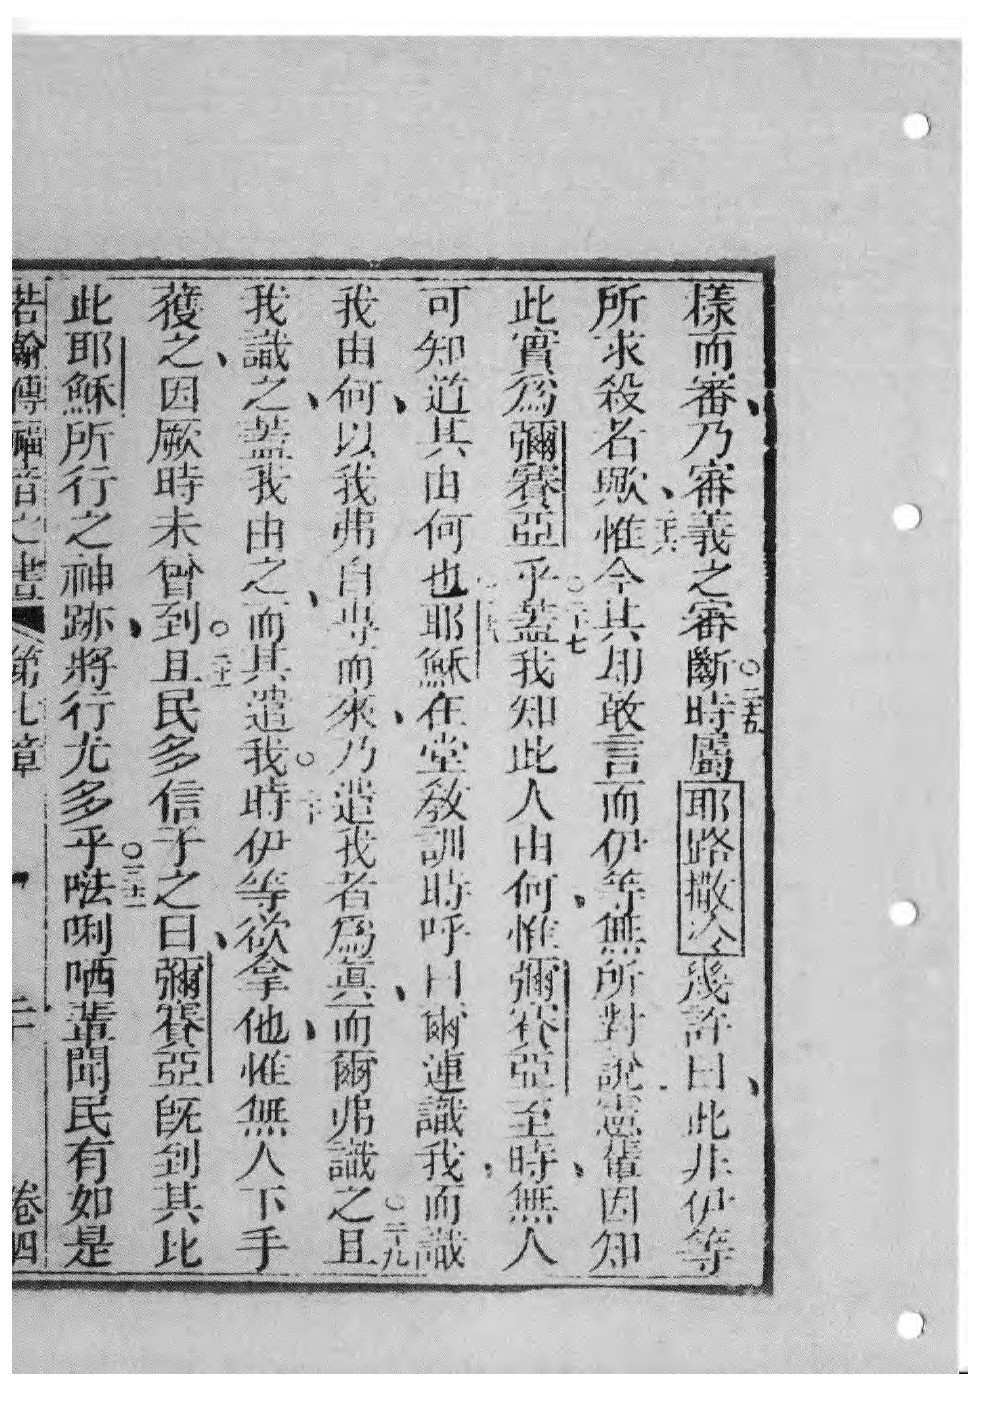 樣而審乃審義之審斷○二十五時屬耶路撒冷幾許曰此非伊等
所求殺名歟○二十六惟今其却敢言而伊等無所對說憲輩因知
此實為彌賽亞乎○二十七蓋我知此人由何惟彌賽亞至時無人
可知道其由何也○二十八耶穌在堂教訓時呼曰爾連識我而識
我由何以我弗自專而來乃遣我者為真而爾弗識之○二十九且
我識之蓋我由之而其遣我○三十時伊等欲拿他惟無人下手
獲之因厥時未曾到○三十一且民多信子之曰彌賽亞既到其比
此耶穌所行之神跡將行尤多乎○三十二𠵽唎哂輩聞民有如是
若翰傳福音之書 第七章 二十 卷四